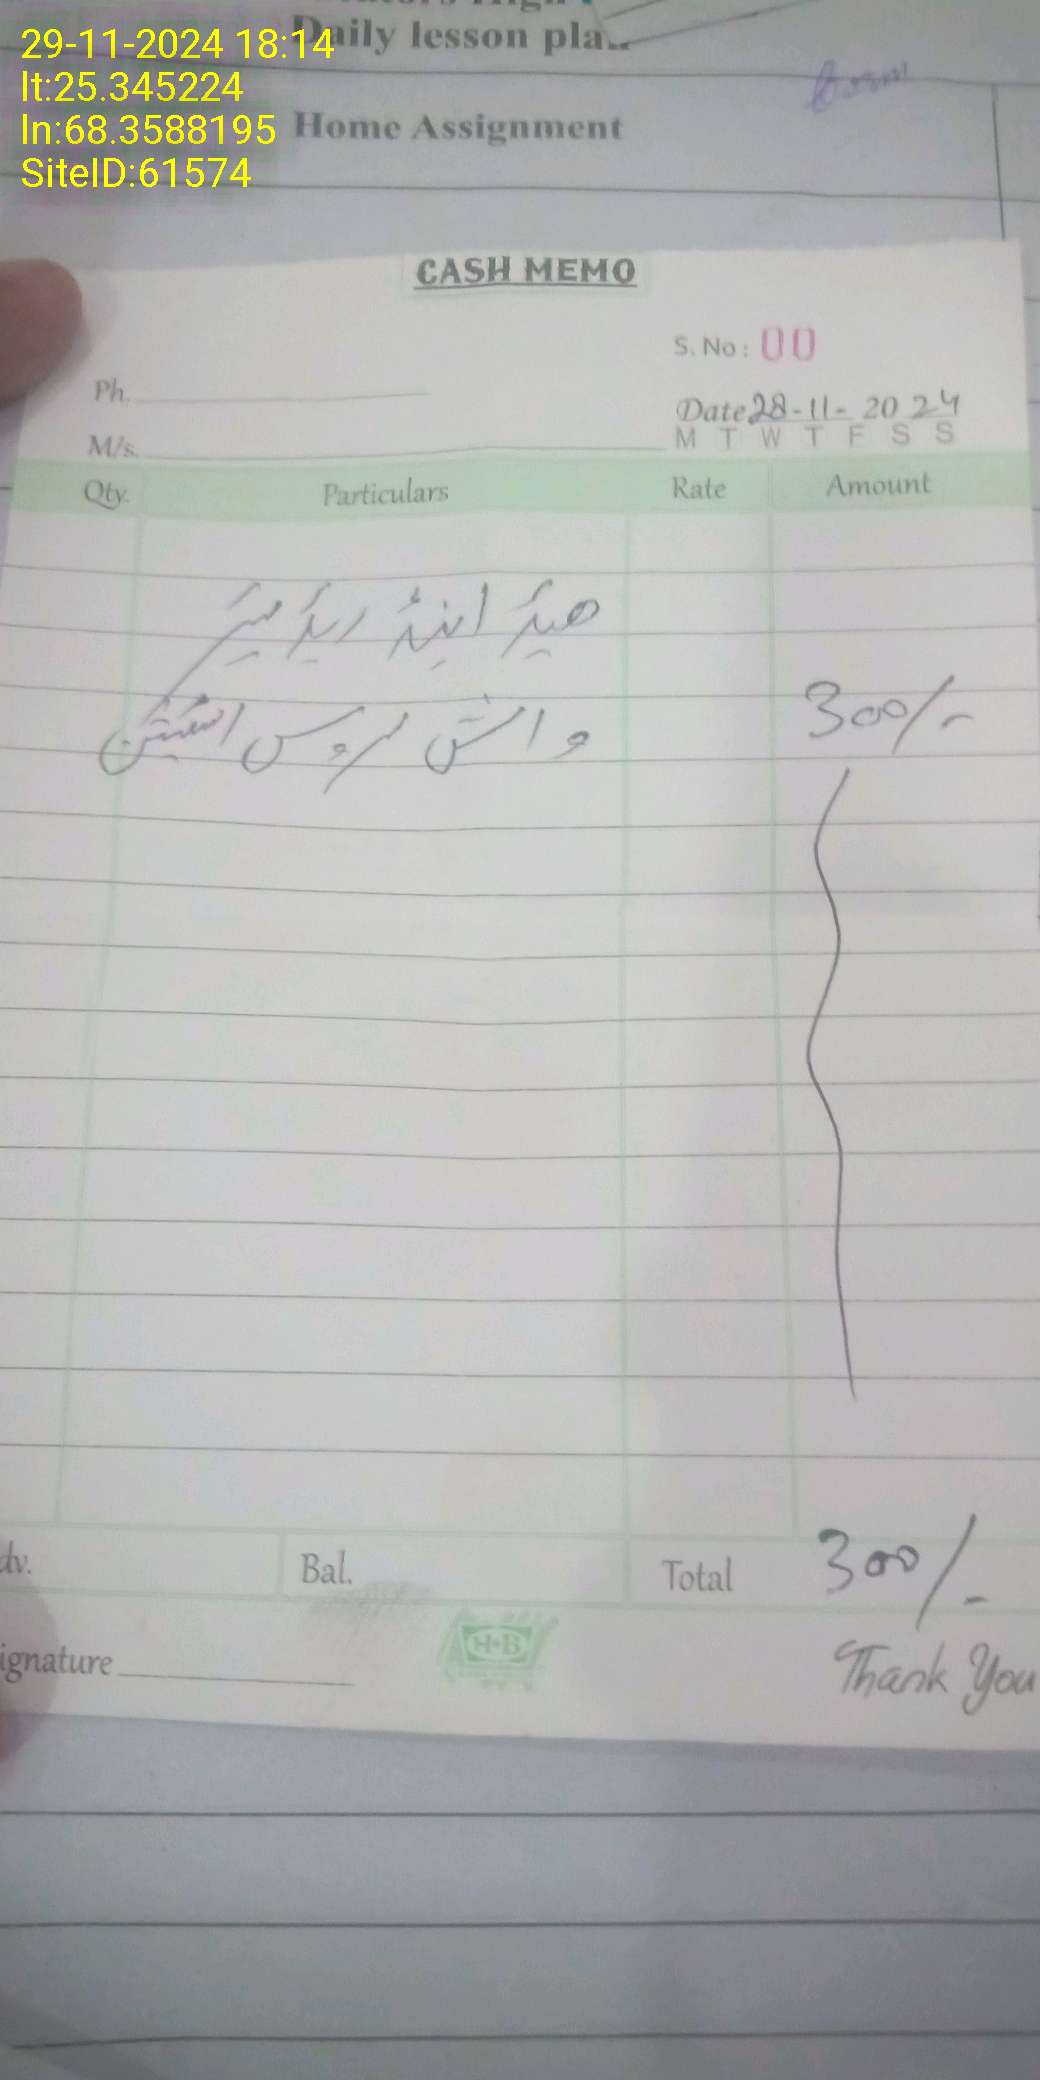 Daily lesson pla
29-11-2024 18:14
lt:25.345224
ln:68.3588195
SiteID:61574
Home Assignment
CASH MEMO
S. No: 00
Ph.
Date 28-11-2024
M/s.
M T W T F S S
Qty. Particulars Rate Amount
ھیڈ اینڈ
واش سروس اسٹیشن 300/-
dv. Bal. Total 300/-
ignature H·B Thank You